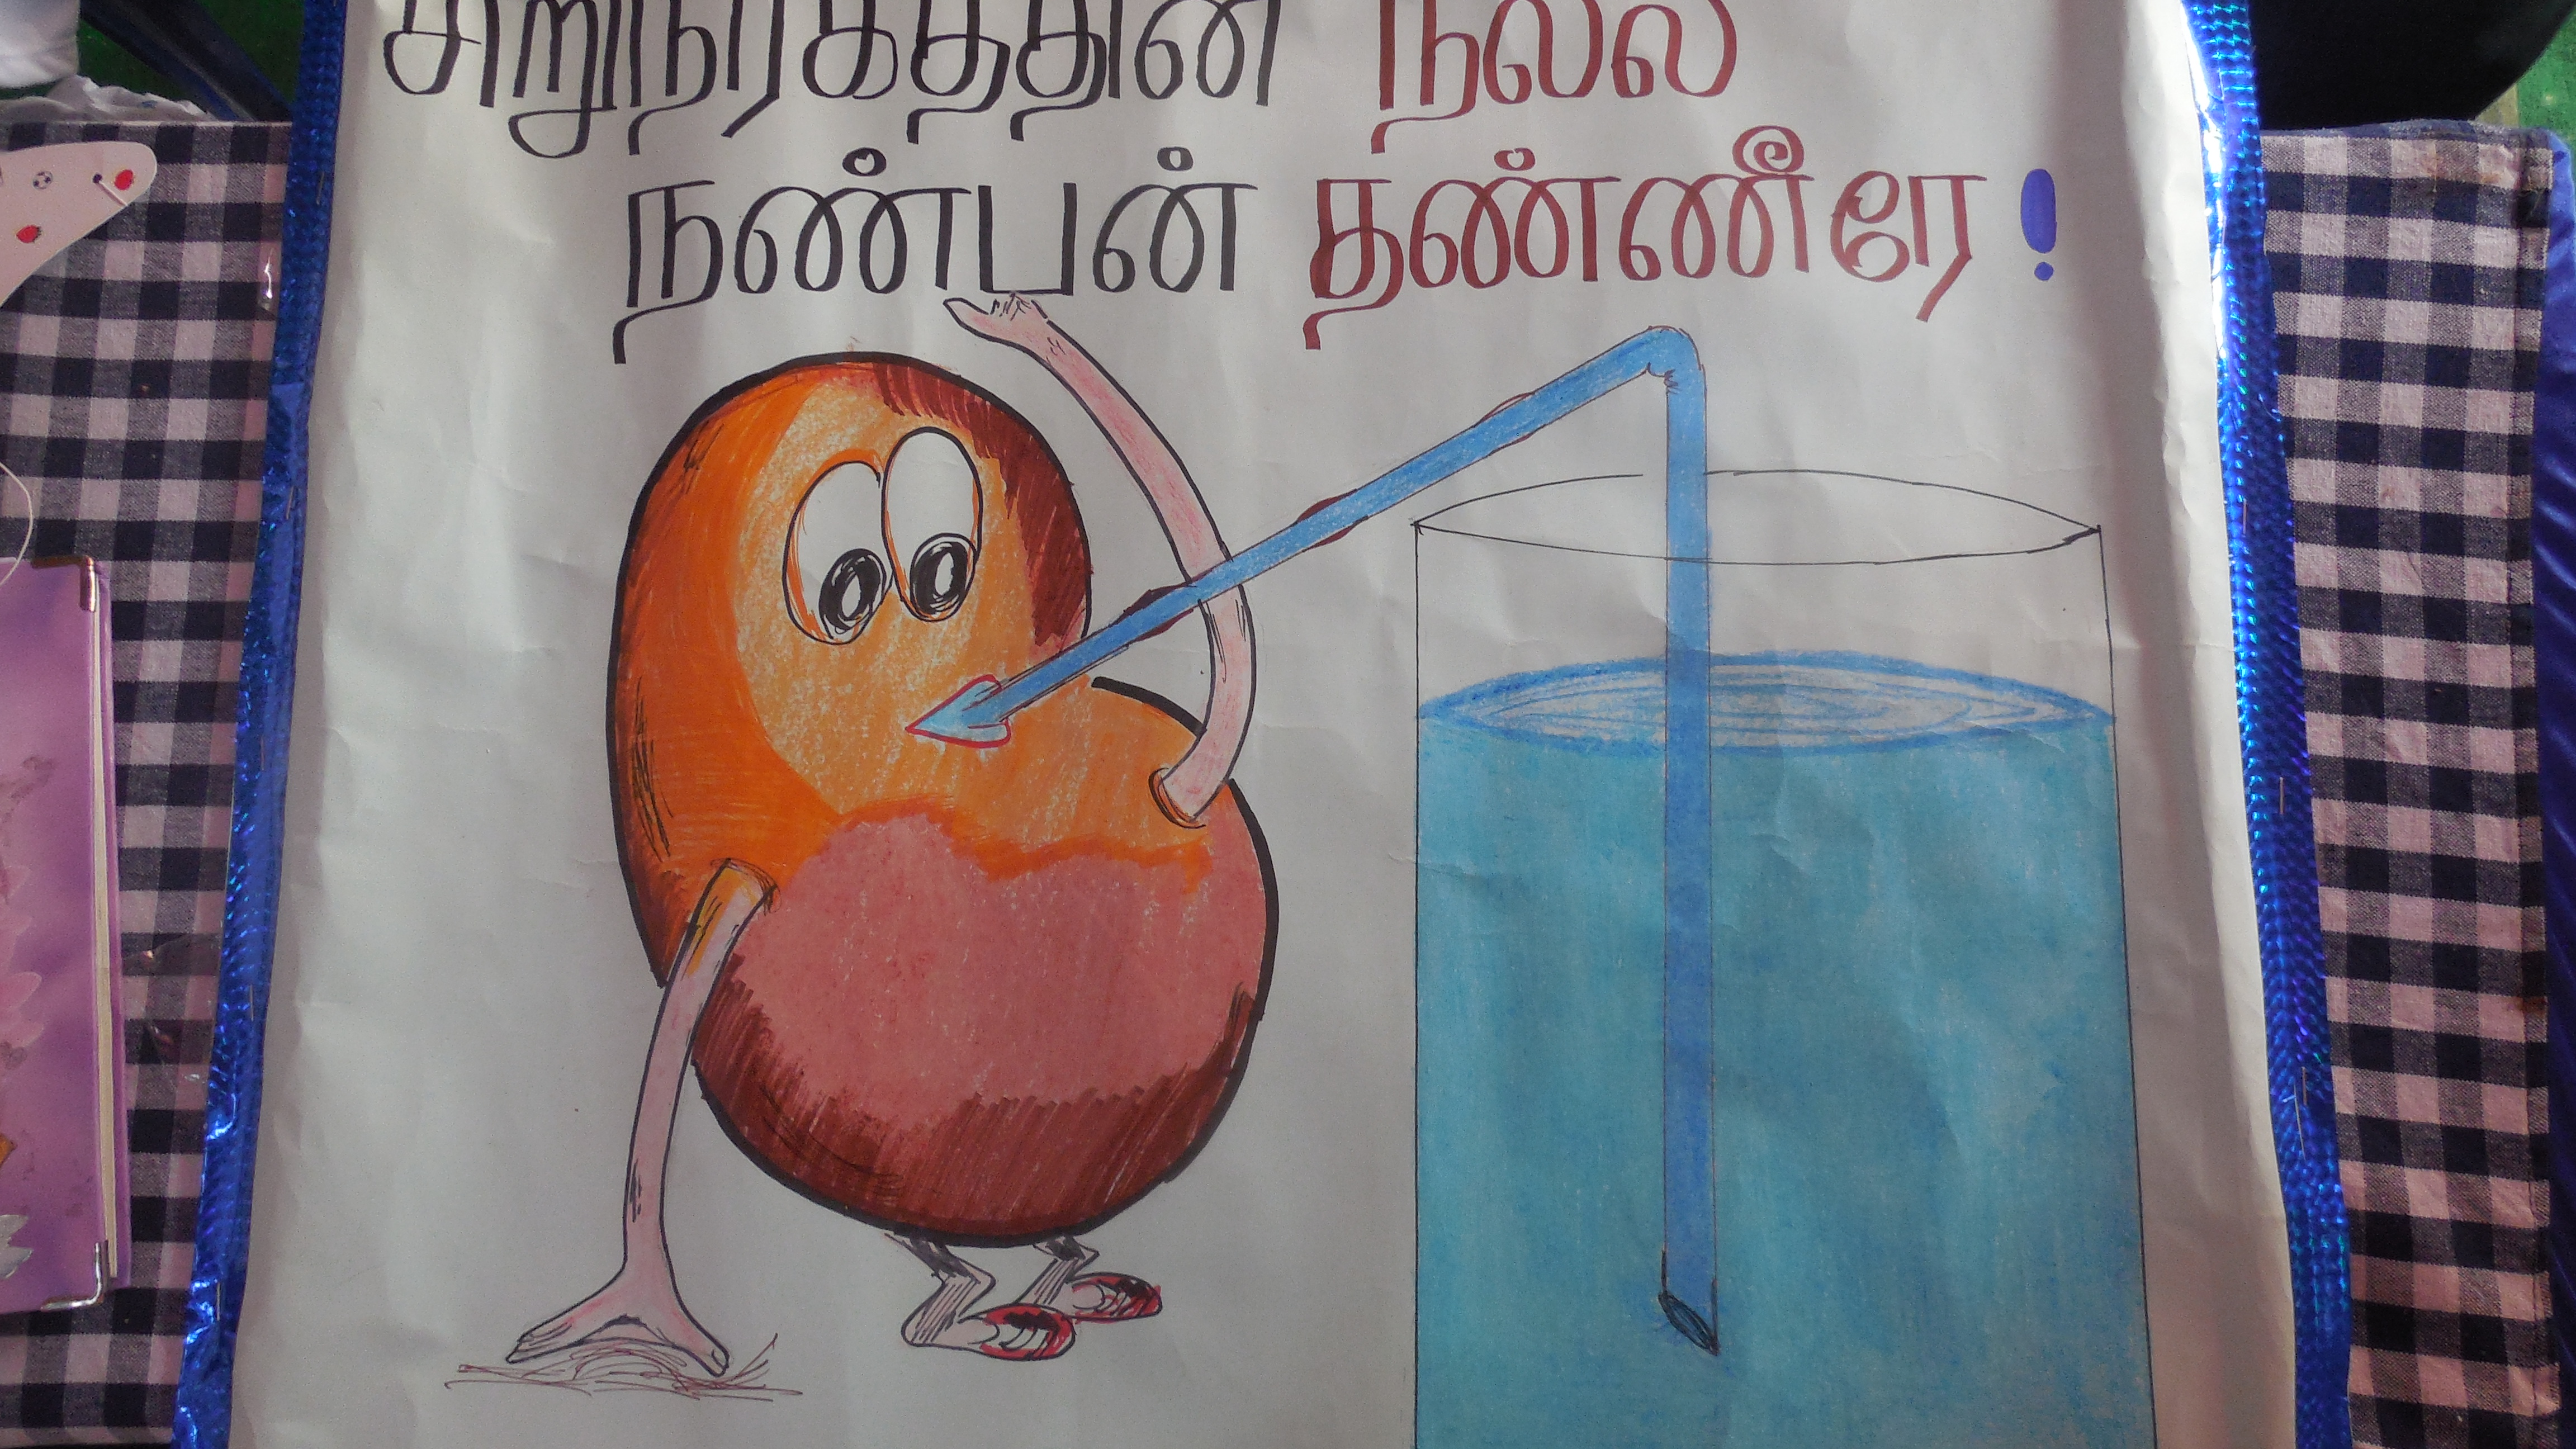 சிறுநீரகத்தின் நல்ல
நண்பன் தண்ணீரே!